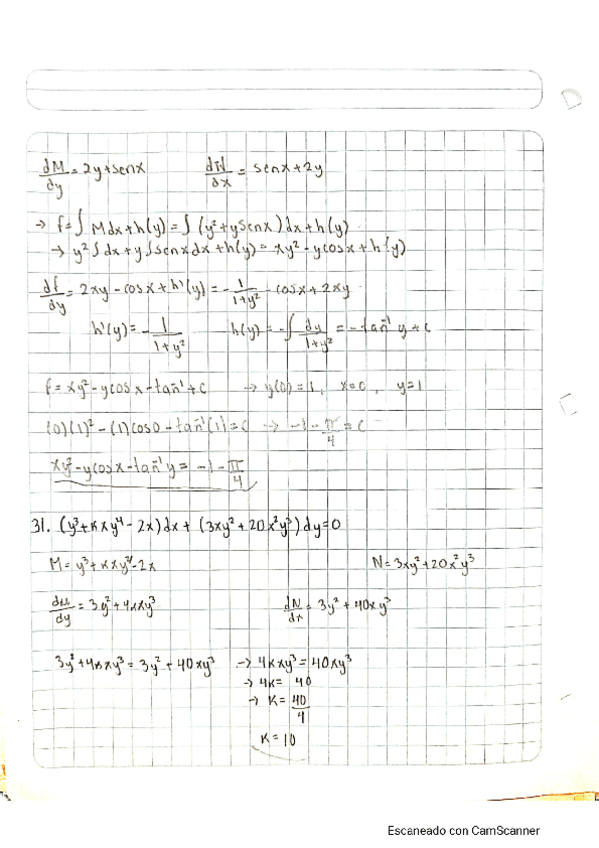 dM/dy = 2y+senx    dN/dx = senx+2y
→ f=∫Mdx+h(y) = ∫(y²+ysenx)dx+h(y)
→ y²∫dx+y∫senxdx+h(y) = xy²-ycosx+h(y)
df/dy = 2xy-cosx+h'(y) = -1/1+y² -cosx+2xy
h'(y) = -1/1+y²    h(y) = -∫dy/1+y² = -tan⁻¹y+c
f=xy²-ycosx-tan⁻¹+c → y(0)=1, x=0, y=1
(0)(1)²-(1)cos0-tan⁻¹(1)=c → -1-π/4=c
xy²-ycosx-tan⁻¹y = -1-π/4
31. (y³+kxy⁴-2x)dx+(3xy²+20x²y³)dy=0
M=y³+kxy⁴-2x    N=3xy²+20x²y³
dM/dy = 3y²+4kxy³    dN/dx = 3y²+40xy³
3y²+4kxy³=3y²+40xy³ → 4kxy³=40xy³
→ 4k= 40
→ k= 40/4
k=10
Escaneado con CamScanner